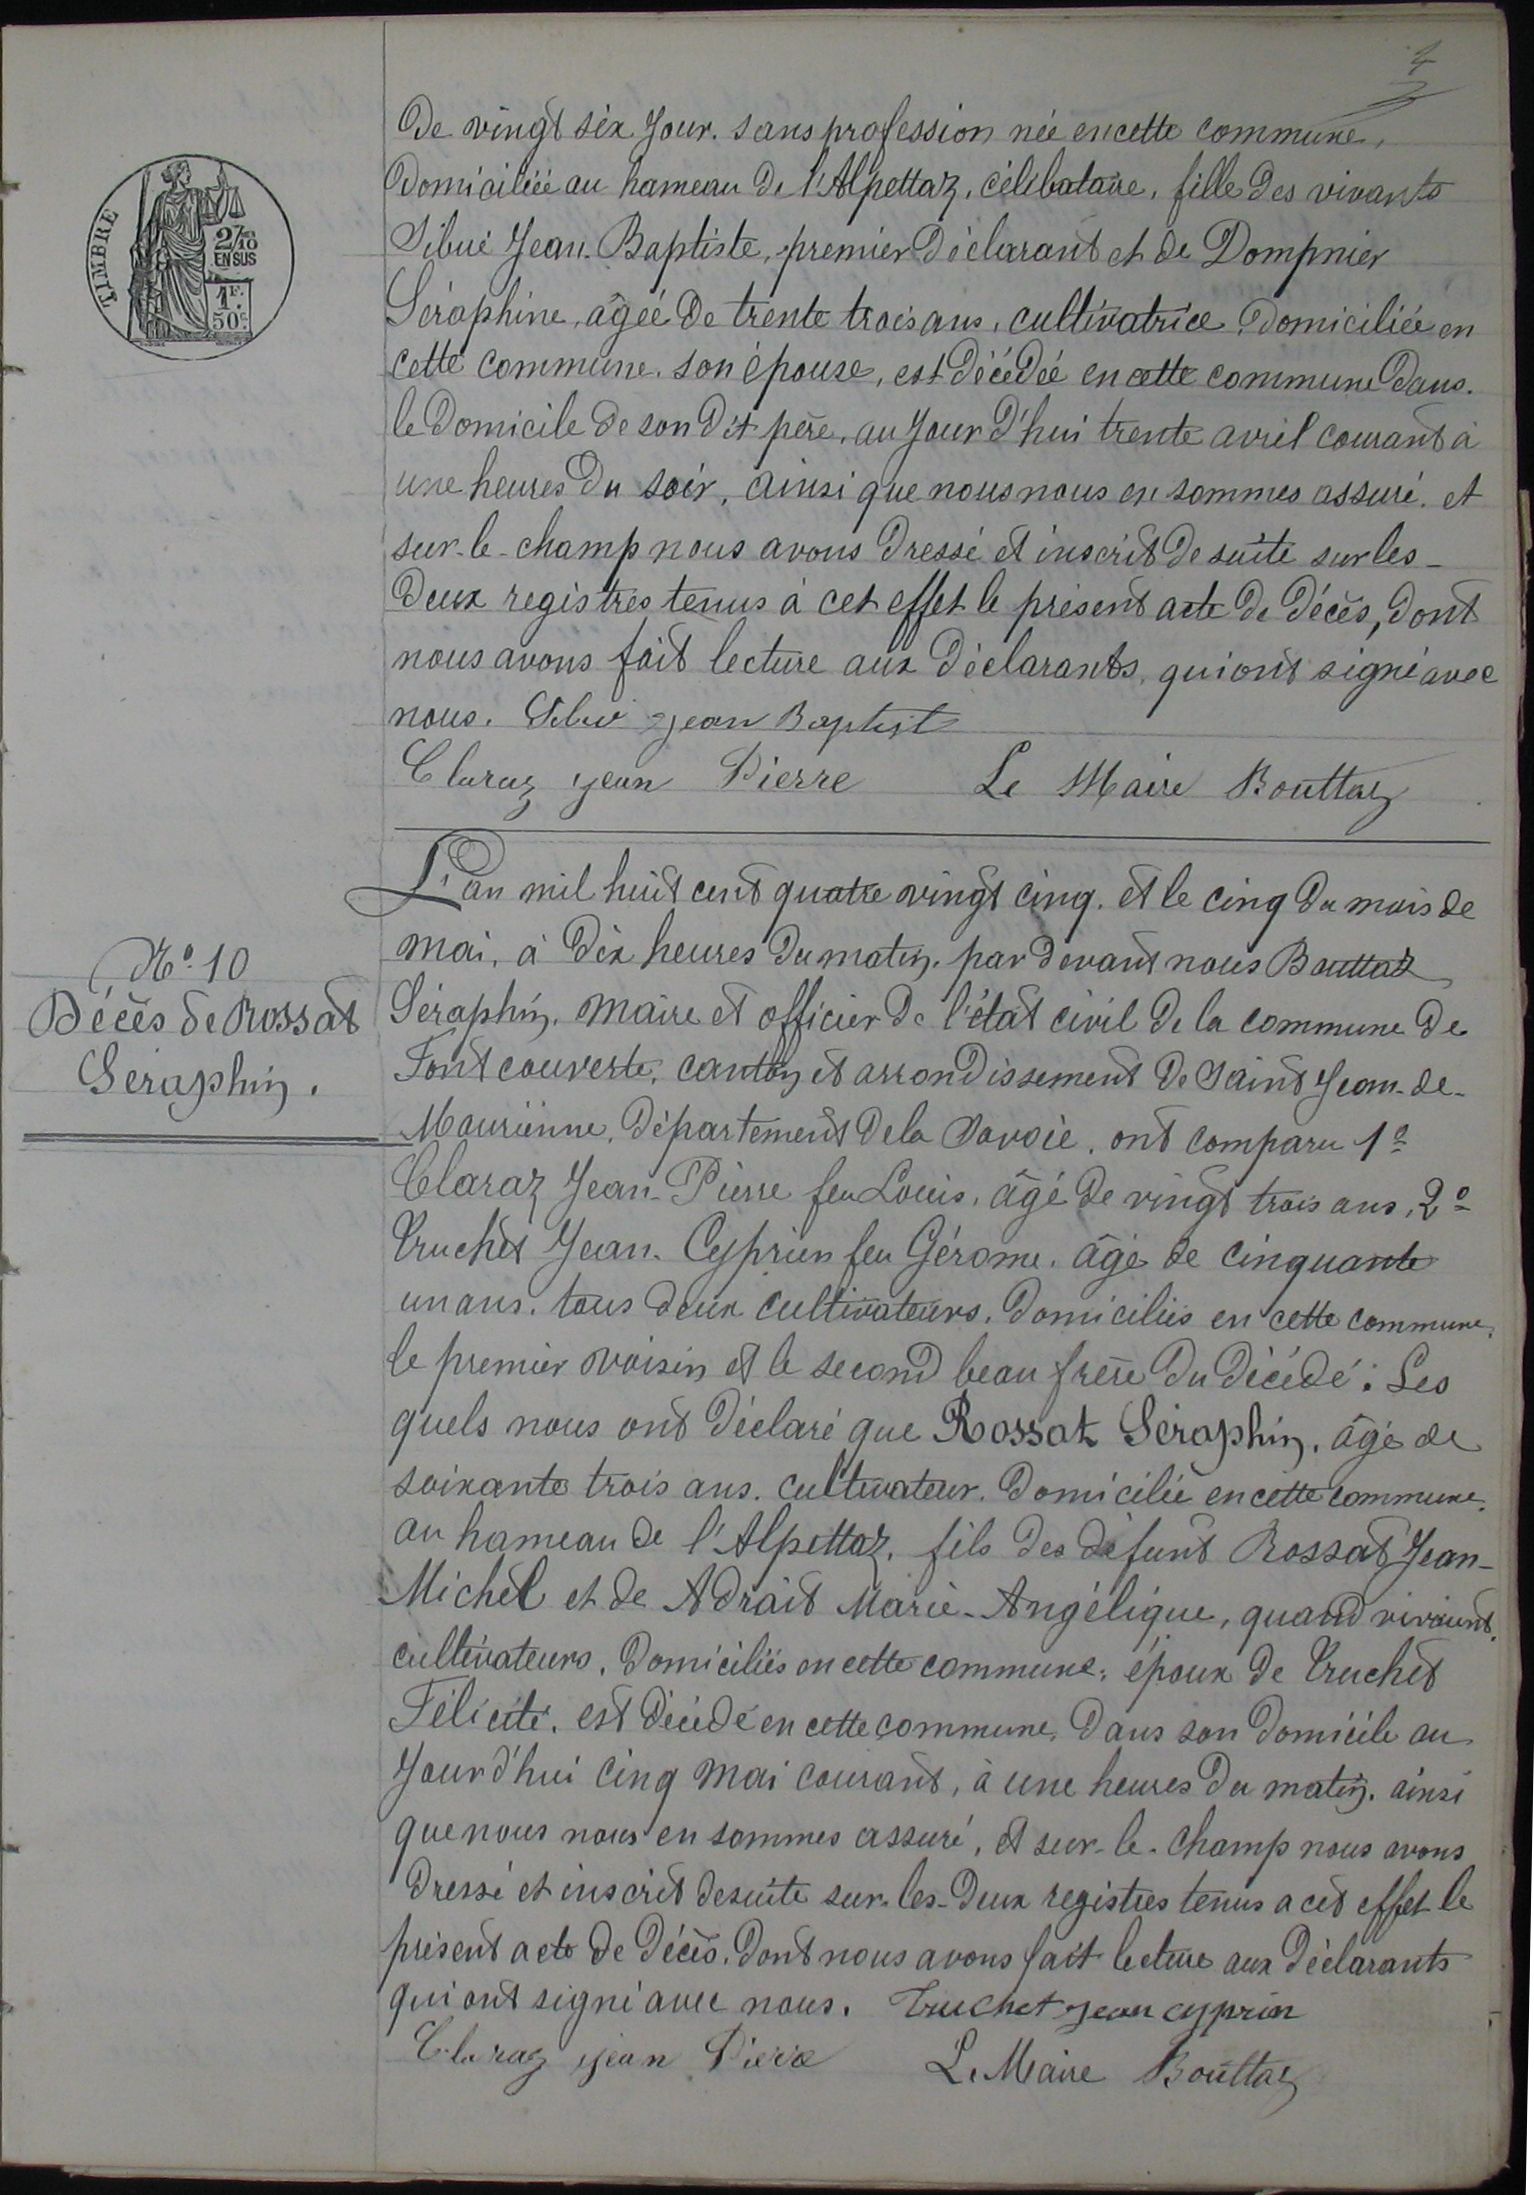 4
TIMBRE
2/10
EN SUS
1F.
50c
de vingt six jour. sans profession née en cette commune,
domiciliée au hameau de l'Alpettaz, célibataire, fille des vivants
Sibué Jean-Baptiste, premier déclarant et de Dompnier
Séraphine, âgée de trente trois ans, cultivatrice, domiciliée en
cette commune, son épouse, est décédée en cette commune dans
le domicile de son dit père, au jour d'hui trente avril courant à
une heures du soir, ainsi que nous nous en sommes assuré, et
sur-le-champ nous avons dressé et inscrit de suite sur les
deux registres tenus à cet effet le présent acte de décès, dont
nous avons fait lecture aux déclarants, qui ont signé avec
nous. Sibué Jean Baptist
Claraz jean Pierre Le Maire Bouttaz
L'an mil huit cent quatre vingt cinq, et le cinq du mois de
mai, à dix heures du matin, par devant nous Bouttaz
Séraphin, maire et officier de l'état civil de la commune de
Fontcouverte, canton et arrondissement de Saint Jean-de-
Maurienne, département de la Savoie, ont comparu 1º
Claraz Jean-Pierre feu Louis, âgé de vingt trois ans, 2º
Truchet Jean-Cyprien feu Gérome, âgé de cinquante
un ans, tous deux cultivateurs, domiciliés en cette commune,
le premier voisin et le second beau frère du décédé: Les
quels nous ont déclaré que Rossat Séraphin, âgé de
soixante trois ans, cultivateur, domicilié en cette commune,
au hameau de l'Alpettaz, fils des défunt Rossat Jean-
Michel et de Adrait Marie-Angélique, quand vivaient
cultivateurs, domiciliés en cette commune; époux de Truchet
Félicité, est décédé en cette commune, dans son domicile au
jour d'hui cinq mai courant, à une heures du matin, ainsi
que nous nous en sommes assuré, et sur-le-champ nous avons
dressé et inscrit de suite sur-les-deux registres tenus a cet effet le
présent acte de décès, dont nous avons fait lecture aux déclarants
qui ont signé avec nous. Truchet jean cyprien
Claraz jean Pierre Le Maire Bouttaz
Nº 10
Décès de Rossat
Séraphin.